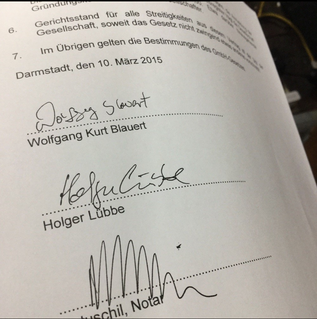 Gründung
6. Gerichtsstand für alle Streitigkeiten aus diesem
Gesellschaft, soweit das Gesetz nicht zwingend
7. Im Übrigen gelten die Bestimmungen des GmbH-Gesetzes
Darmstadt, den 10. März 2015
Wolfgang Kurt Blauert
Holger Lübbe
Holger Lübbe
uschil, Notar